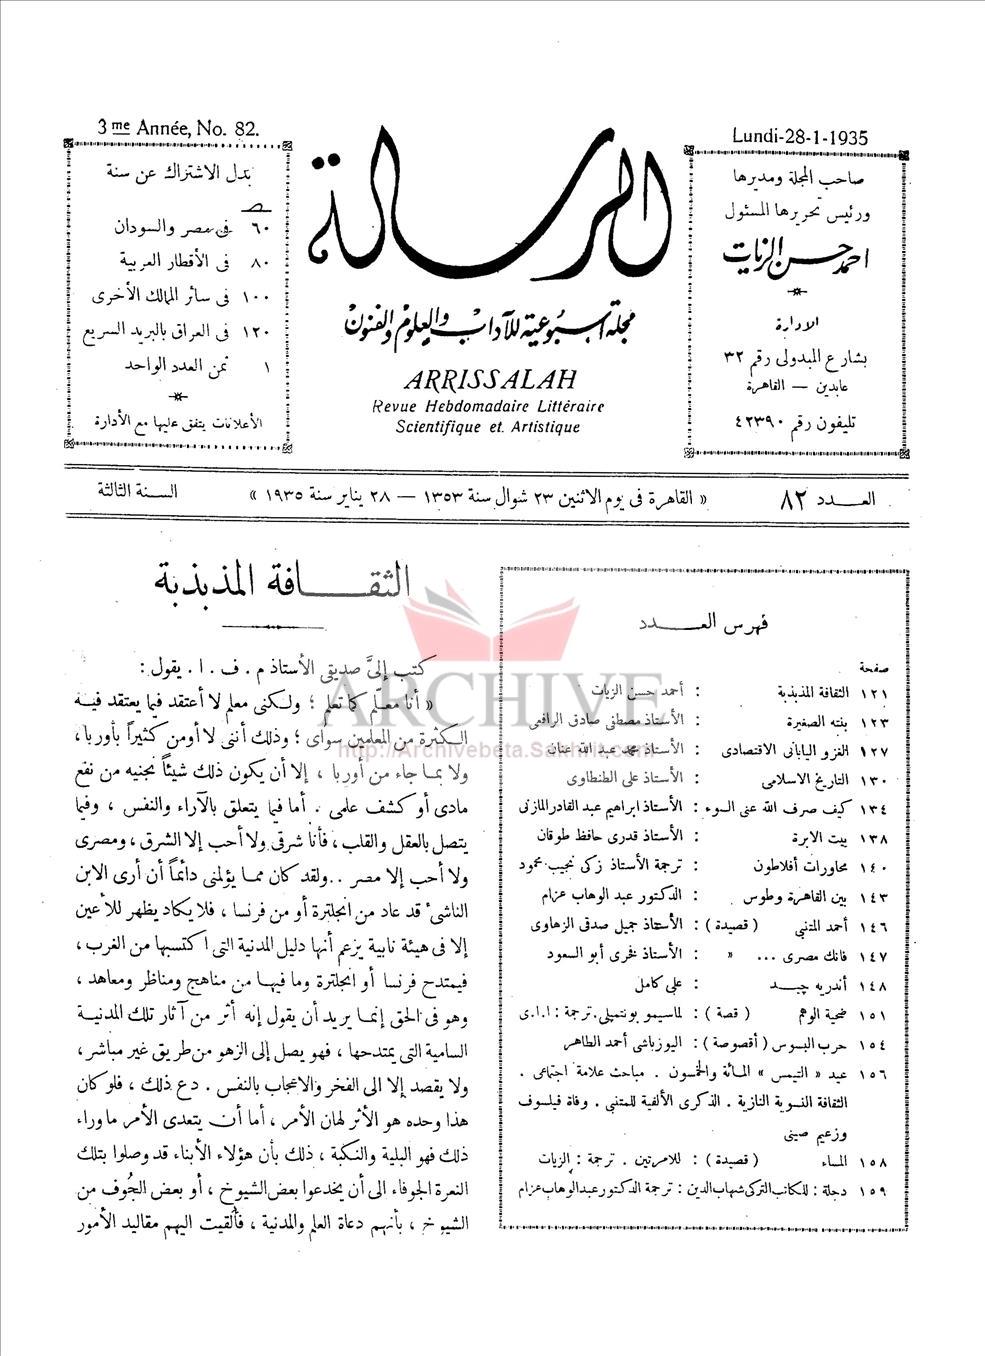 3me Année, No. 82.
بدل الاشتراك عن سنة
٦٠ فى مصر والسودان
٨٠ فى الأقطار العربية
١٠٠ فى سائر الممالك الأخرى
١٢٠ فى العراق بالبريد السريع
١ ثمن العدد الواحد
الأعلانات يتفق عليها مع الأدارة
الرسالة
مجلة أسبوعية للآداب والعلوم والفنون
ARRISSALAH
Revue Hebdomadaire Littéraire
Scientifique et Artistique
Lundi-28-1-1935
صاحب المجلة ومديرها
ورئيس تحريرها المسئول
احمد حسن الزيات
الادارة
بشارع المبدولى رقم ٣٢
عابدين — القاهرة
تليفون رقم ٤٢٣٩٠
العـــدد ٨٢
« القاهرة فى يوم الاثنين ٢٣ شوال سنة ١٣٥٣ — ٢٨ يناير سنة ١٩٣٥ »
السنة الثالثة
فهرس العـــدد
صفحة
١٢١ الثقافة المذبذبة : أحمد حسن الزيات
١٢٣ بنته الصغيرة : الأستاذ مصطفى صادق الرافعى
١٢٧ الغزو اليابانى الاقتصادى : الأستاذ محمد عبد الله عنان
١٣٠ التاريخ الاسلامى : الأستاذ على الطنطاوى
١٣٤ كيف صرف الله عنى السوء : الأستاذ ابراهيم عبد القادر المازنى
١٣٨ بيت الابرة : الأستاذ قدرى حافظ طوقان
١٤٠ محاورات أفلاطون : ترجمة الأستاذ زكى نجيب محمود
١٤٣ بين القاهرة وطوس : الدكتور عبد الوهاب عزام
١٤٦ أحمد المتنبى ( قصيدة ) : الأستاذ جميل صدقى الزهاوى
١٤٧ فاتك مصرى ... » : الأستاذ فخرى أبو السعود
١٤٨ أندريه چيـــد : على كامل
١٥١ ضحية الوهم ( قصة ) : لماسيمو بونتمپلى . ترجمة : ا . ا . ى
١٥٤ حرب البسوس ( أقصوصة ) : اليوزباشى أحمد الطاهر
١٥٦ عيد « التيمس » المائة والخمسون . مباحث علامة اجتماعى .
الثقافة النسوية النازية . الذكرى الألفية للمتنبى . وفاة فيلسوف
وزعيم صينى
١٥٨ المساء ( قصيدة ) : للامرتين . ترجمة : الزيات
١٥٩ دجلة : للكاتب التركى شهاب الدين : ترجمة الدكتور عبد الوهاب عزام
الثقـــافة المذبذبة
كتب إلىَّ صديقى الأستاذ م . ف . ا . يقول :
« أنا معلّم كما تعلم ؛ ولكنى معلم لا أعتقد فيما يعتقد فيه
الكثرة من المعلمين سواى ؛ وذلك أننى لا أومن كثيراً بأوربا ،
ولا بما جاء من أوربا ، إلا أن يكون ذلك شيئاً نجنيه من نفع
مادى أو كشف علمى . أما فيما يتعلق بالآراء والنفس ، وفيما
يتصل بالعقل والقلب ، فأنا شرقى ولا أحب إلا الشرق ، ومصرى
ولا أحب إلا مصر .. ولقد كان مما يؤلمنى دائماً أن أرى الابن
الناشئ قد عاد من انجلترة أو من فرنسا ، فلا يكاد يظهر للأعين
إلا فى هيئة نابية يزعم أنها دليل المدنية التى اكتسبها من الغرب ،
فيمتدح فرنسا أو انجلترة وما فيها من مناهج ومناظر ومعاهد ،
وهو فى الحق إنما يريد أن يقول إنه أثر من آثار تلك المدنية
السامية التى يمتدحها ، فهو يصل إلى الزهو من طريق غير مباشر ،
ولا يقصد إلا الى الفخر والاعجاب بالنفس . دع ذلك ، فلو كان
هذا وحده هو الأثر لهان الأمر ، أما أن يتعدى الأمر ما وراء
ذلك فهو البلية والنكبة ، ذلك بأن هؤلاء الأبناء قد وصلوا بتلك
النعرة الجوفاء الى أن يخدعوا بعض الشيوخ ، أو بعض الجُوف من
الشيوخ ، بأنهم دعاة العلم والمدنية ، فألقيت اليهم مقاليد الأمور
ARCHIVE
http://Archivebeta.Sakhrit.com